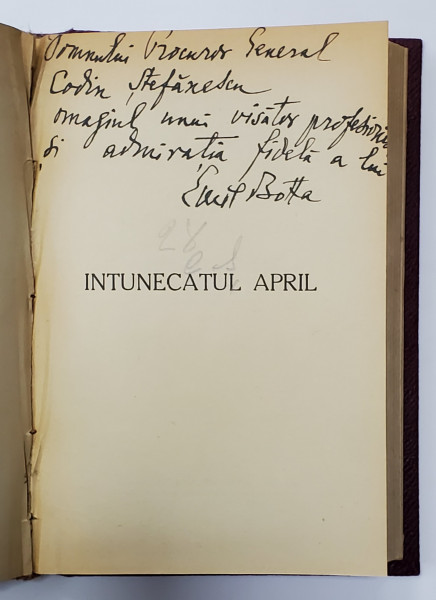 Domnului Procuror General
Codin Ștefănescu
omagiul unui visător profesionist
și admirația fidelă a lui
Emil Botta
INTUNECATUL APRIL